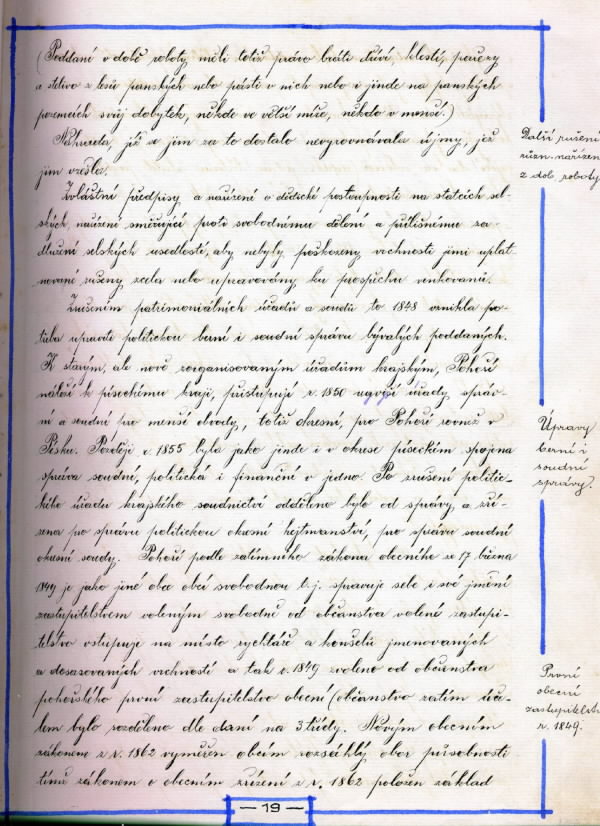 (Poddaní v době roboty měli totiž právo bráti dříví, klestí, pařezy
a stelivo z lesů panských nebo pásti v nich nebo i jinde na panských
pozemcích svůj dobytek, někde ve větší míře, někde v menší.)
Náhrada, jíž se jim za to dostalo nevyrovnávala újmy, jež
jim vzešla.
Zvláštní předpisy a nařízení o dědické postupnosti na statcích sel-
ských, nařízení směřující proti svobodnému dělení a přílišnému za-
dlužení selských usedlostí, aby nebyly poškozeny vrchnosti jimi uplat-
nované rušeny zcela nebo upravovány ku prospěchu venkovanů.
Zrušením patrimoniálních úřadů a soudů to 1848 vznikla po-
třeba upraviti politickou berní i soudní správu bývalých poddaných.
K starým, ale nově zorganisovaným úřadům krajským, Pohoří
náleží k píseckému kraji, přistupují r. 1850 úřady správ-
ní a soudní pro menší obvody, totiž okresní, pro Pohoří rovněž v
Písku. Později r. 1855 byla jako jinde i v okrese píseckém spojena
správa soudní, politická i finanční v jedno. Po zrušení politic-
kého úřadu krajského soudnictví odděleno bylo od správy a zří-
zena pro správu politickou okresní hejtmanství, pro správu soudní
okresní soudy. Pohoří podle zatímního zákona obecního ze 17. března
1849 je jako jiné obce obcí svobodnou t. j. spravuje sebe i své jmění
zastupitelstvem voleným svobodně od občanstva volené zastupi-
telstvo vstupuje na místo rychtářů a konšelů jmenovaných
a dosazovaných vrchností a tak r. 1849 zvoleno od občanstva
pohorského první zastupitelstvo obecní (občanstvo zatím úče-
lem bylo rozděleno dle daní na 3 třídy. Novým obecním
zákonem z r. 1862 vyměřen obcím rozsáhlý obor působnosti
tímž zákonem o obecním zřízení z r. 1862 položen základ
Další rušení
různ. nařízení
z dob. roboty
Úpravy
berní i
soudní
správy.
První
obecní
zastupitelst.
r. 1849.
— 19 —